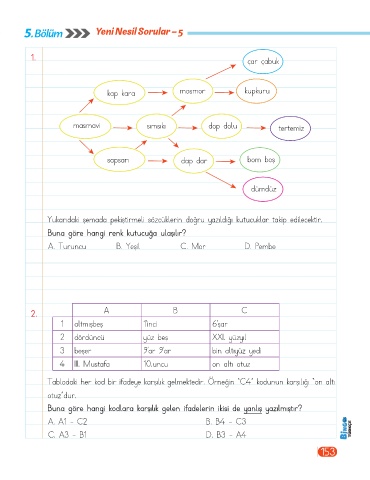 5. Bölüm Yeni Nesil Sorular - 5
1.
car çabuk
kap kara
mosmor
kupkuru
masmavi
sımsıkı
dop dolu
tertemiz
sapsarı
dap dar
bom boş
dümdüz
Yukarıdaki şemada pekiştirmeli sözcüklerin doğru yazıldığı kutucuklar takip edilecektir.
Buna göre hangi renk kutucuğa ulaşılır?
A. Turuncu B. Yeşil C. Mor D. Pembe
2.
A B C
1 altmışbeş 11inci 6'şar
2 dördüncü yüz beş XXII. yüzyıl
3 beşer 9'ar 9'ar bin altıyüz yedi
4 III. Mustafa 10.uncu on altı otuz
Tablodaki her kod bir ifadeye karşılık gelmektedir. Örneğin "C4" kodunun karşılığı "on altı
otuz"dur.
Buna göre hangi kodlara karşılık gelen ifadelerin ikisi de yanlış yazılmıştır?
A. A1 - C2 B. B4 - C3
C. A3 - B1 D. B3 - A4
BİNGO TÜRKÇE
153